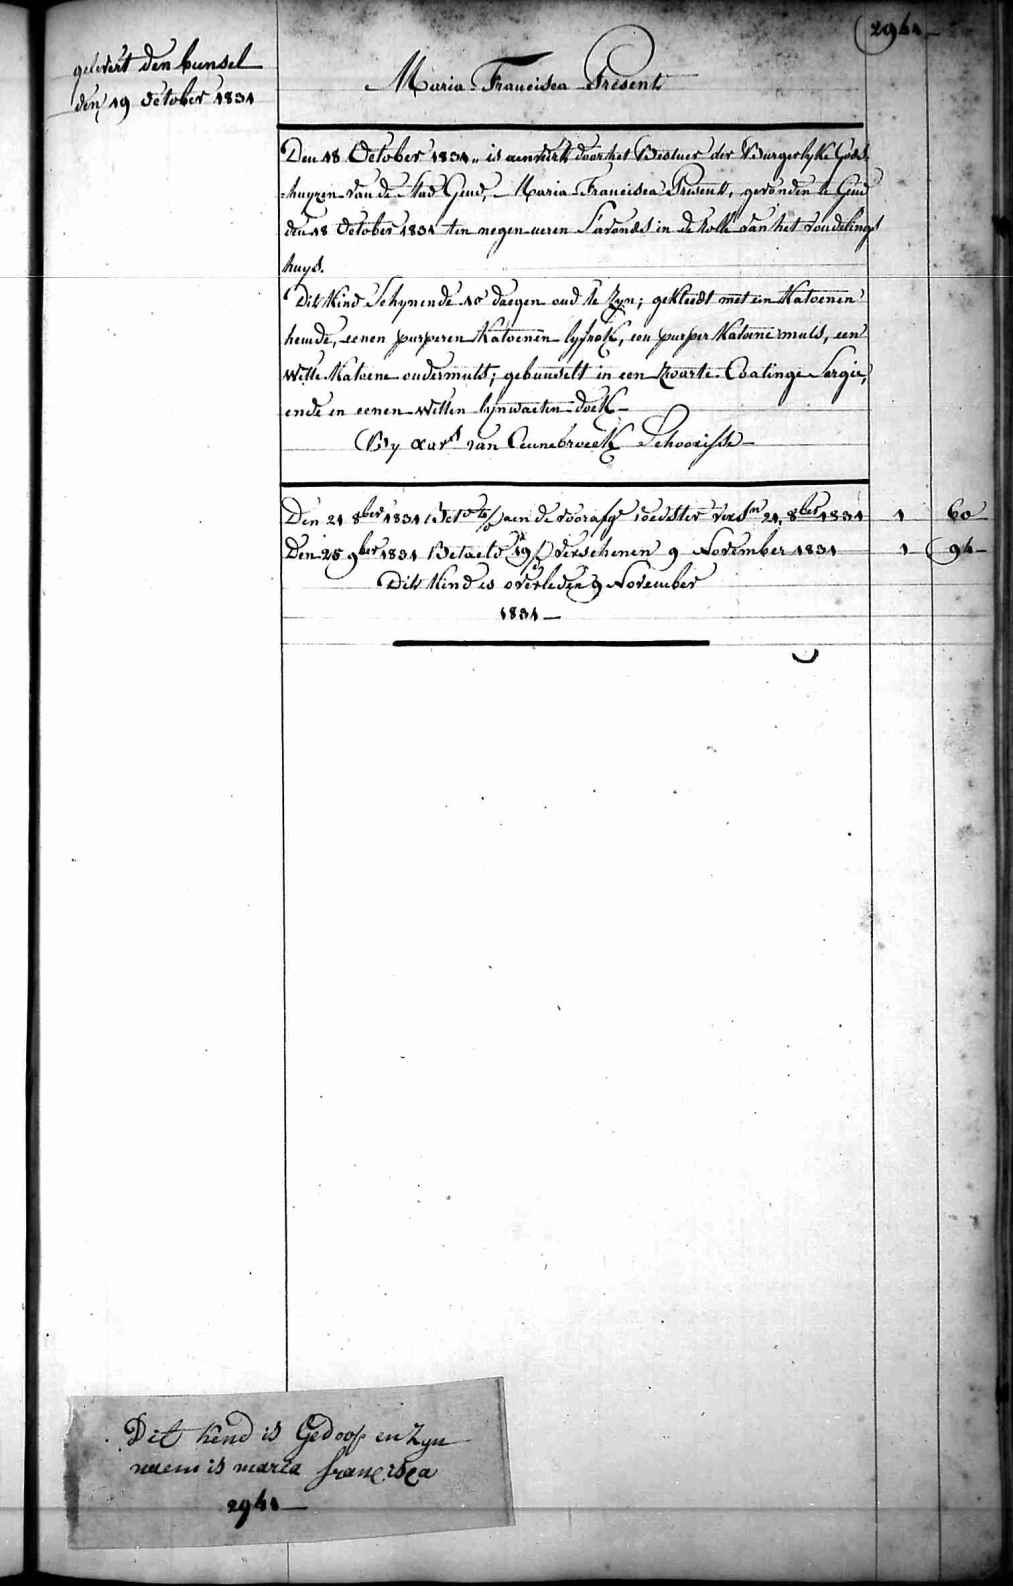 2961
gelevert den bunsel
den 19 October 1831
Maria Francisca Present
Den 18 October 1831 is aenveirt door het Bestuer der Burgerlyke Gods
huyzen van de Stad Gend, Maria Francisca Present, gevonden te Gend
den 18 October 1831 ten negen ueren s'avonds in de rolle van het vondelings
huys.
Dit kind Schynende 10 daegen oud te Zyn; gekleedt met een Katoenen
hemde, eenen purperen Katoenen lyfrok, een purper Katoene muts, een
Witte Katoene ondermuts; gebunselt in een Zwarte Coatinge Sargie,
ende in eenen Witten lynwaeten doek
By van Ceunebroeck Schoorisse
Den 21 8ber 1831 aen de voorafge voedster 21 8ber 1831 1 60
Den 25 9ber 1831 Betaelt verschenen 9 November 1831 1 94
Dit Kind is overleden 9 November
1831
Dit kind is Gedoop en Zyn
naem is maria francisca
2961